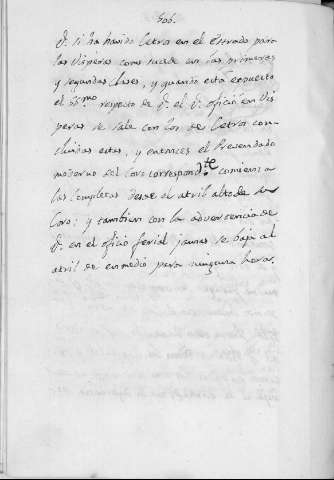 506.
q.e si ha havido Letra en el Estrado para
las Visperas como sucede en las primeras
y segundas clases, y quando está expuesto
el SS.mo respecto de q.e el q.e ofició en Vis
peras se sale con los de Letras con-
cluidas estas, y entonces el Presendado
moderno del Coro correspond.te comienza
las Completas desde el atril alto de su
Coro: y tambien con la advertencia de
q.e en el oficio ferial jamas se baja al
atril de enmedio para ninguna hora.